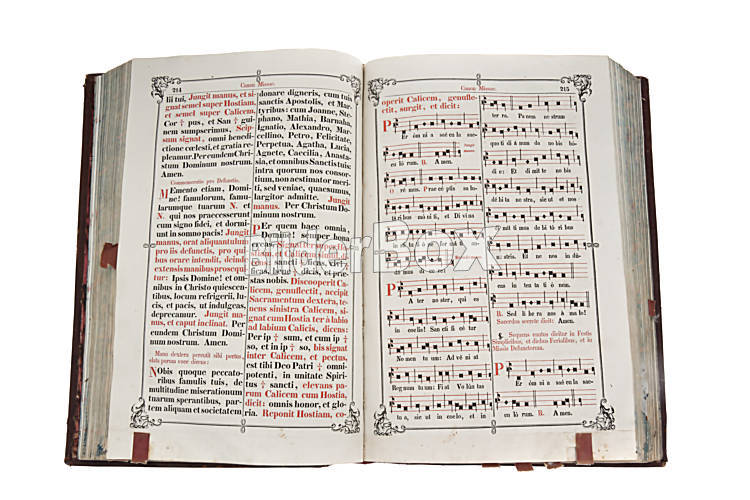 214
Canon Missae.
lii tui, Jungit manus, et si-
gnat semel super Hostiam,
et semel super Calicem,
Cor † pus, et San † gui-
nem sumpserimus, Scip-
sum signat, omni benedi-
ctione coelesti, et gratia re-
pleamur. Per eumdem Chri-
stum Dominum nostrum.
Amen.
Commemoratio pro Defunctis.
Memento etiam, Domi-
ne! famulorum, famu-
larumque tuarum N. et
N. qui nos praecesserunt
cum signo fidei, et dormi-
unt in somno pacis! Jungit
manus, orat aliquantulum
pro iis defunctis, pro qui-
bus orare intendit, deinde
extensis manibus prosequi
tur: Ipsis Domine! et om-
nibus in Christo quiescen-
tibus, locum refrigerii, lu-
cis, et pacis, ut indulgeas,
deprecamur. Jungit ma-
nus, et caput inclinat. Per
eundem Christum Domi-
num nostrum. Amen.
Manu dextera percutit sibi pectus,
elata parum voce dicens:
Nobis quoque peccato-
ribus famulis tuis, de
multitudine miserationum
tuarum sperantibus, par-
tem aliquam et societatem
donare digneris, cum tuis
sanctis Apostolis, et Mar-
tyribus: cum Joanne, Ste-
phano, Mathia, Barnaba,
Ignatio, Alexandro, Mar-
cellino, Petro, Felicitate,
Perpetua, Agatha, Lucia,
Agnete, Caecilia, Anasta-
sia, et omnibus Sanctis tuis:
intra quorum nos consor-
tium, non aestimator meri-
ti, sed veniae, quaesumus,
largitor admitte. Jungit
manus. Per Christum Do-
minum nostrum.
Per quem haec omnia,
Domine! semper bona
sancti
ficas, bene dicis, et prae-
stas nobis. Discooperit Ca-
licem, genuflectit, accipit
Sacramentum dextera, te-
nens sinistra Calicem, si-
gnat cum Hostia ter à labio
ad labium Calicis, dicens:
Per ip † sum, et cum ip †
so, et in ip † so, bis signat
inter Calicem, et pectus,
est tibi Deo Patri † omni-
potenti, in unitate Spiri-
tus † sancti, elevans pa-
rum Calicem cum Hostia
dicit: omnis honor, et glo-
ria. Reponit Hostiam, co-
Canon Missae.
215
operit Calicem, genufle-
ctit, surgit, et dicit:
Per omnia saecula sae-
culorum. R. Amen.
Oremus. Praeceptis sa
taribus moniti, et Divina
Pater noster, qui es
in coelis! Sanctificetur
Nomen tuum: Adveniat
Regnum tuum: Fiat Voluntas
tua, sicut in coelo, et in
terra. Panem nostrum
quotidianum da nobis ho-
die: Et dimitte nobis
debita nostra, sicut et nos
Et ne nos in
R. Sed libera nos a malo!
Sacerdos secrete dicit: Amen.
Sequens cantus dicitur in Festis
Simplicibus, et diebus Ferialibus, et in
Missis Defunctorum.
Per omnia saecula sae-
culorum. R. Amen.